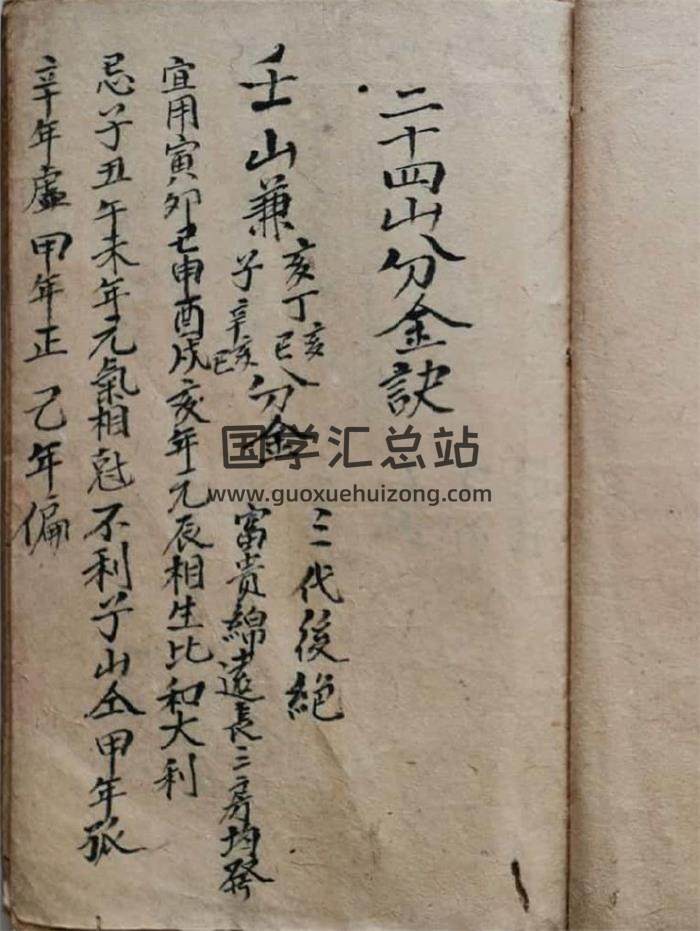 二十四山分金訣
壬山兼
亥丁亥巳
子辛亥巳
分金
三代後絕
富貴綿遠長三房均發
宜用寅卯巳申酉戌亥年元辰相生比和大利
忌子丑午未年元氣相尅不利子山仝甲年孤
辛年虛甲年正己年偏
国学汇总站
www.guoxuehuizong.com